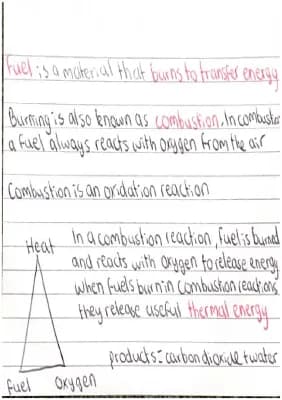 Fuel is a material that burns to transfer energy
Burning is also known as combustion. In combustion
a fuel always reacts with oxygen from the air
Combustion is an oxidation reaction
Heat
In a combustion reaction, fuel is burned
and reacts with oxygen to release energy
when fuels burn in combustion reactions
they release useful thermal energy
products = carbon dioxide + water
Fuel Oxygen